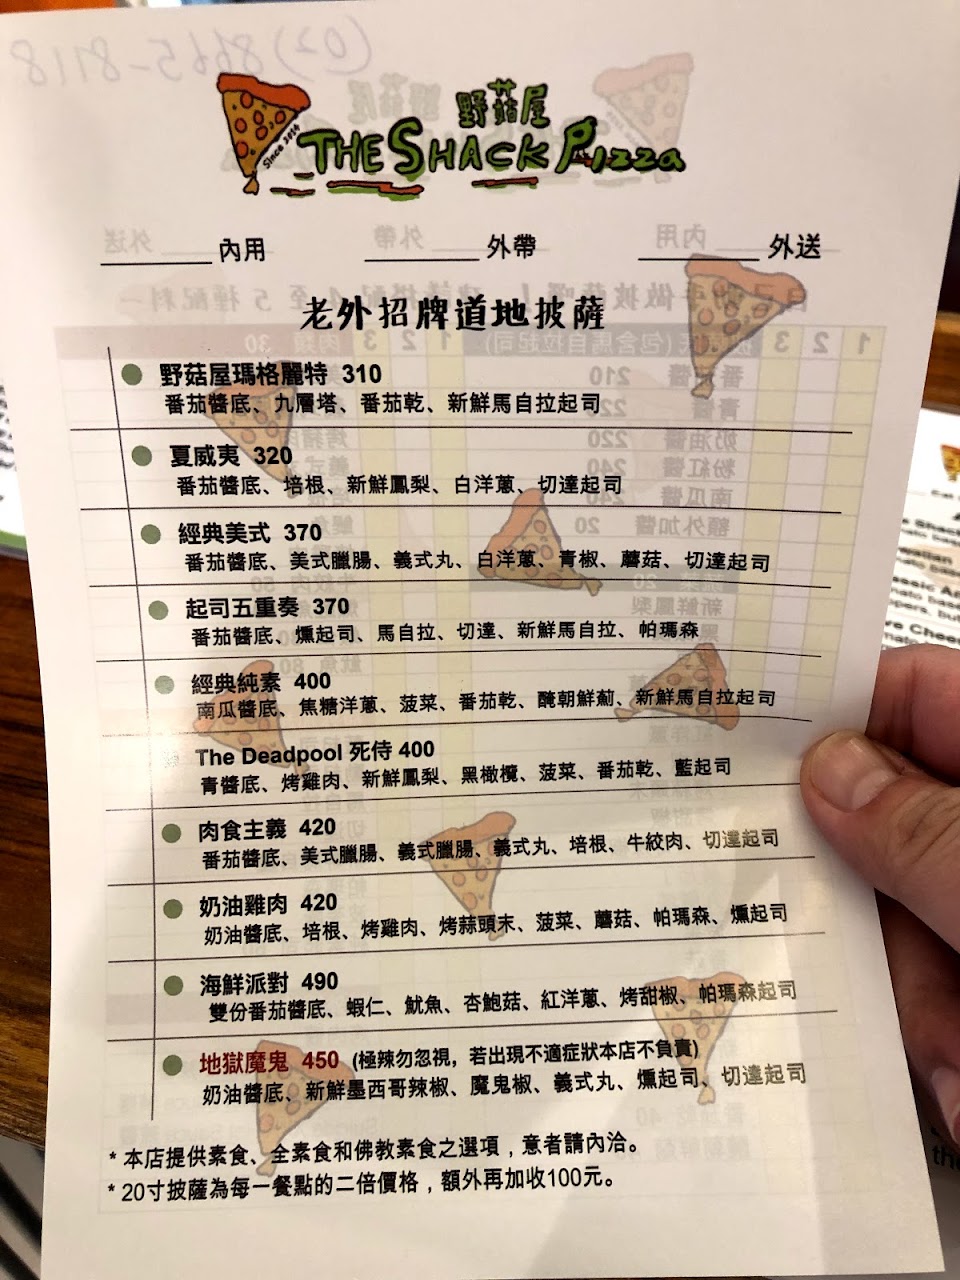 (02) 8665-8118
野菇屋
Since 2014
THE SHACK Pizza
______ 內用 ______ 外帶 ______ 外送
老外招牌道地披薩
野菇屋瑪格麗特 310
番茄醬底、九層塔、番茄乾、新鮮馬自拉起司
夏威夷 320
番茄醬底、培根、新鮮鳳梨、白洋蔥、切達起司
經典美式 370
番茄醬底、美式臘腸、義式丸、白洋蔥、青椒、蘑菇、切達起司
起司五重奏 370
番茄醬底、燻起司、馬自拉、切達、新鮮馬自拉、帕瑪森
經典純素 400
南瓜醬底、焦糖洋蔥、菠菜、番茄乾、醃朝鮮薊、新鮮馬自拉起司
The Deadpool 死侍 400
青醬底、烤雞肉、新鮮鳳梨、黑橄欖、菠菜、番茄乾、藍起司
肉食主義 420
番茄醬底、美式臘腸、義式臘腸、義式丸、培根、牛絞肉、切達起司
奶油雞肉 420
奶油醬底、培根、烤雞肉、烤蒜頭末、菠菜、蘑菇、帕瑪森、燻起司
海鮮派對 490
雙份番茄醬底、蝦仁、魷魚、杏鮑菇、紅洋蔥、烤甜椒、帕瑪森起司
地獄魔鬼 450 (極辣勿忽視，若出現不適症狀本店不負責)
奶油醬底、新鮮墨西哥辣椒、魔鬼椒、義式丸、燻起司、切達起司
* 本店提供素食、全素食和佛教素食之選項，意者請內洽。
* 20寸披薩為每一餐點的二倍價格，額外再加收100元。